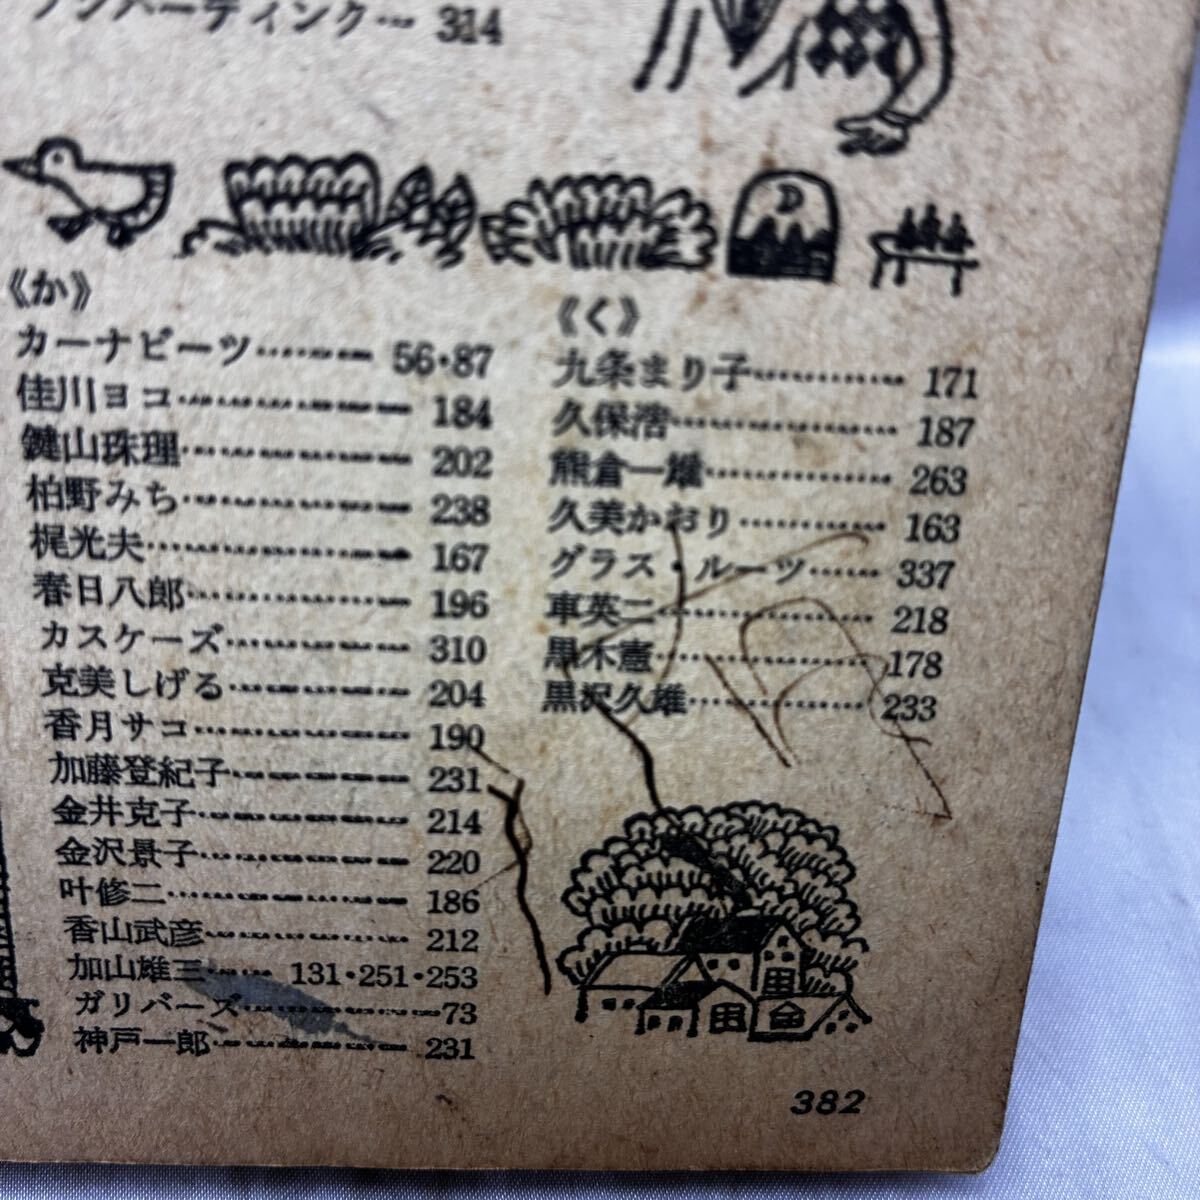 314
《か》
カーナビーツ………… 56・87
佳川ヨコ………… 184
鍵山珠理………… 202
柏野みち………… 238
梶光夫………… 167
春日八郎………… 196
カスケーズ………… 310
克美しげる………… 204
香月サコ………… 190
加藤登紀子………… 231
金井克子………… 214
金沢景子………… 220
叶修二………… 186
香山武彦………… 212
加山雄三…… 131・251・253
ガリバーズ…………73
神戸一郎………… 231
《く》
九条まり子………… 171
久保浩………… 187
熊倉一雄………… 263
久美かおり………… 163
グラス・ルーツ…… 337
車英二………… 218
黒木憲………… 178
黒沢久雄………… 233
382